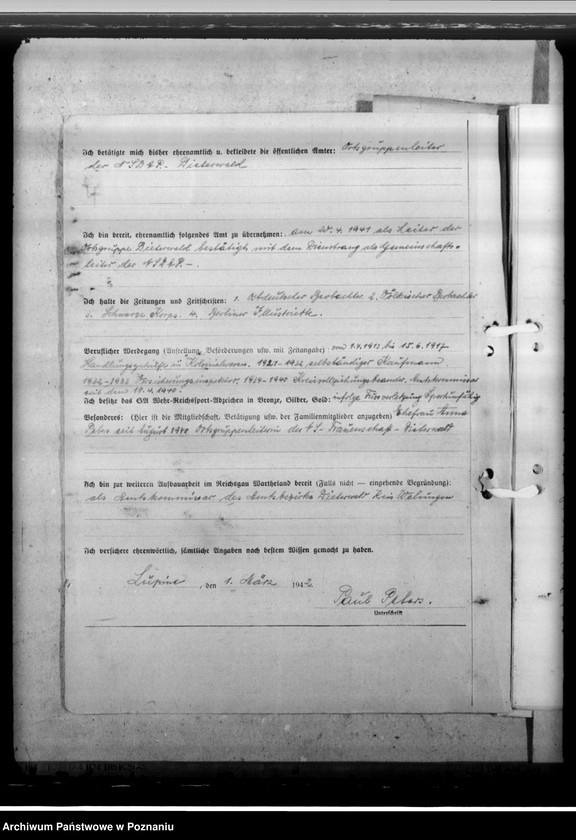 Ich betätigte mich bisher ehrenamtlich u. bekleidete die öffentlichen Ämter: Ortsgruppenleiter
der NSDAP. Dieterwald
Ich bin bereit, ehrenamtlich folgendes Amt zu übernehmen: am 20.4.1941 als Leiter der
Ortsgruppe Dieterwald bestätigt mit dem Dienstrang als Gemeinschafts-
leiter der NSDAP-.
Ich halte die Zeitungen und Zeitschriften: 1. Ostdeutscher Beobachter 2. Völkischer Beobachter
3. Schwarze Korps. 4. Berliner Illustrierte.
Beruflicher Werdegang (Anstellung, Beförderungen usw. mit Zeitangabe) vom 1.4.1913 bis 15.6.1917
Handlungsgehilfe in Kolonialwaren. 1921-1932 selbständiger Kaufmann
1932-1933 Versicherungsinspektor. 1934-1940 Kreisvollziehungsbeamter, Amtskommissar
seit dem 18.4.1940.
Ich besitze das SA Wehr-Reichssport-Abzeichen in Bronze, Silber, Gold: infolge Sportunfähig
Besonderes: (Hier ist die Mitgliedschaft, Betätigung usw. der Familienmitglieder anzugeben) Ehefrau Anna
Peters seit August 1940 Ortsgruppenleiterin der NS-Frauenschaft-Dieterwald
Ich bin zur weiteren Aufbauarbeit im Reichsgau Wartheland bereit (Falls nicht — eingehende Begründung):
als Amtskommissar des Amtsbezirks Dieterwald Kreis
Ich versichere ehrenwörtlich, sämtliche Angaben nach bestem Wissen gemacht zu haben.
, den 1. März 1942
Paul Peters.
Unterschrift
Archiwum Państwowe w Poznaniu